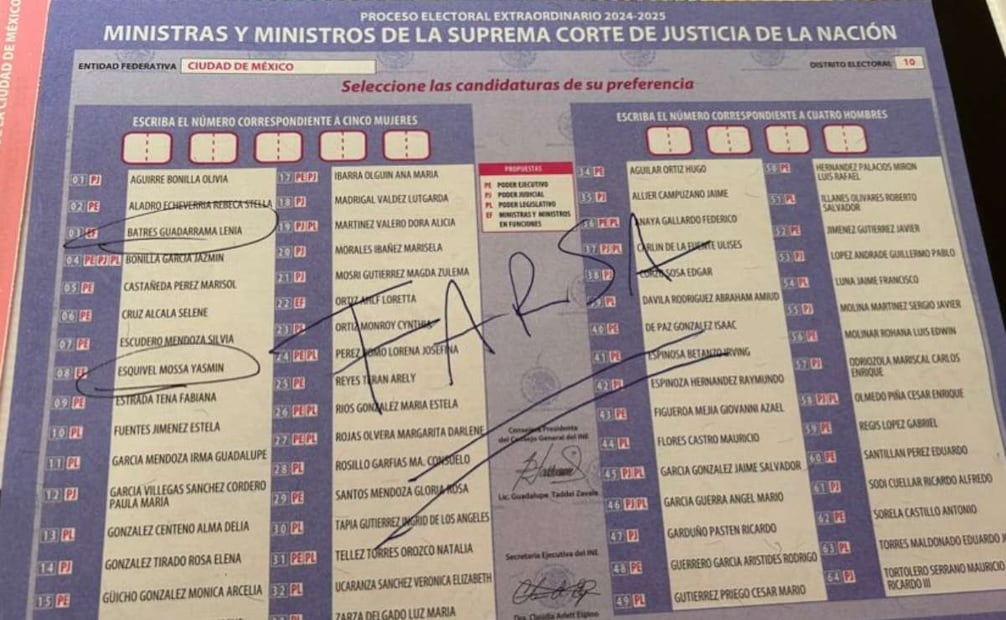 PROCESO ELECTORAL EXTRAORDINARIO 2024-2025
MINISTRAS Y MINISTROS DE LA SUPREMA CORTE DE JUSTICIA DE LA NACIÓN
ENTIDAD FEDERATIVA CIUDAD DE MÉXICO
DISTRITO ELECTORAL 10
Seleccione las candidaturas de su preferencia
ESCRIBA EL NÚMERO CORRESPONDIENTE A CINCO MUJERES
01 PJ AGUIRRE BONILLA OLIVIA
02 PE ALADRO ECHEVERRIA REBECA STELLA
03 EF BATRES GUADARRAMA LENIA
04 PE PJ PL BONILLA GARCIA JAZMIN
05 PE CASTAÑEDA PEREZ MARISOL
06 PE CRUZ ALCALA SELENE
07 PE ESCUDERO MENDOZA SILVIA
08 EF ESQUIVEL MOSSA YASMIN
09 PE ESTRADA TENA FABIANA
10 PL FUENTES JIMENEZ ESTELA
11 PL GARCIA MENDOZA IRMA GUADALUPE
12 PJ GARCIA VILLEGAS SANCHEZ CORDERO
PAULA MARIA
13 PL GONZALEZ CENTENO ALMA DELIA
14 PJ GONZALEZ TIRADO ROSA ELENA
15 PE GÜICHO GONZALEZ MONICA ARCELIA
17 PE PJ IBARRA OLGUIN ANA MARIA
18 PJ MADRIGAL VALDEZ LUTGARDA
19 PJ PL MARTINEZ VALERO DORA ALICIA
20 PJ MORALES IBAÑEZ MARISELA
21 PJ MOSRI GUTIERREZ MAGDA ZULEMA
22 EF ORTIZ AHLF LORETTA
23 PL ORTIZ MONROY CYNTHIA
24 PE PL PEREZ ROMO LORENA JOSEFINA
25 PE REYES TERAN ARELY
26 PE PL RIOS GONZALEZ MARIA ESTELA
27 PE PL ROJAS OLVERA MARGARITA DARLENE
28 PL ROSILLO GARFIAS MA. CONSUELO
29 PE SANTOS MENDOZA GLORIA ROSA
30 PL TAPIA GUTIERREZ INGRID DE LOS ANGELES
31 PE PL TELLEZ TORRES OROZCO NATALIA
32 PL UCARANZA SANCHEZ VERONICA ELIZABETH
ZARZA DELGADO LUZ MARIA
PROPUESTAS
PE PODER EJECUTIVO
PJ PODER JUDICIAL
PL PODER LEGISLATIVO
EF MINISTRAS Y MINISTROS
EN FUNCIONES
FARSA
Consejera Presidenta
del Consejo General del INE
Lic. Guadalupe Taddei Zavala
Secretaria Ejecutiva del INE
Dra. Claudia Arlett Espino
ESCRIBA EL NÚMERO CORRESPONDIENTE A CUATRO HOMBRES
34 PE AGUILAR ORTIZ HUGO
35 PJ ALLIER CAMPUZANO JAIME
36 PE PL ANAYA GALLARDO FEDERICO
37 PJ PL CARLIN DE LA FUENTE ULISES
38 PJ CORZO SOSA EDGAR
PL DAVILA RODRIGUEZ ABRAHAM AMIUD
40 PE DE PAZ GONZALEZ ISAAC
41 PE ESPINOSA BETANZO IRVING
42 PL ESPINOZA HERNANDEZ RAYMUNDO
43 PE FIGUEROA MEJIA GIOVANNI AZAEL
44 PL FLORES CASTRO MAURICIO
45 PJ PL GARCIA GONZALEZ JAIME SALVADOR
46 PJ PL GARCIA GUERRA ANGEL MARIO
47 PJ GARDUÑO PASTEN RICARDO
48 PE GUERRERO GARCIA ARISTIDES RODRIGO
49 PL GUTIERREZ PRIEGO CESAR MARIO
50 PE HERNANDEZ PALACIOS MIRON
LUIS RAFAEL
51 PL ILLANES OLIVARES ROBERTO
SALVADOR
52 PE JIMENEZ GUTIERREZ JAVIER
53 PJ LOPEZ ANDRADE GUILLERMO PABLO
54 PL LUNA JAIME FRANCISCO
55 PJ MOLINA MARTINEZ SERGIO JAVIER
56 PE MOLINAR ROHANA LUIS EDWIN
57 PJ ODRIOZOLA MARISCAL CARLOS
ENRIQUE
58 PJ PL OLMEDO PIÑA CESAR ENRIQUE
59 PE REGIS LOPEZ GABRIEL
60 PE SANTILLAN PEREZ EDUARDO
61 PJ SODI CUELLAR RICARDO ALFREDO
62 PE SORELA CASTILLO ANTONIO
63 PL TORRES MALDONADO EDUARDO
64 PJ TORTOLERO SERRANO MAURICIO
RICARDO III
LA CIUDAD DE MÉXICO